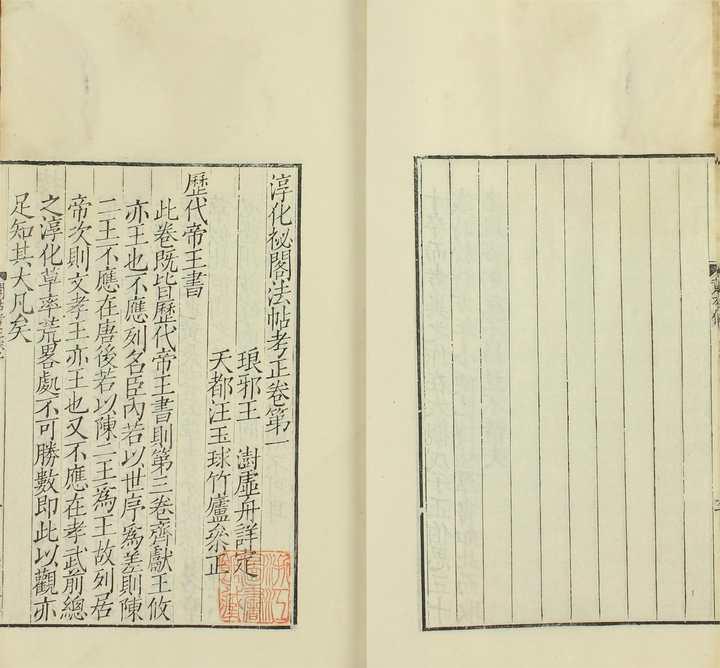 淳化祕閣法帖考正卷第一
琅邪王　澍虛舟詳定
天都汪玉球竹廬叅正
歷代帝王書
此卷旣皆歷代帝王書則第三卷齊獻王攸
亦王也不應列名臣內若以世序爲差則陳
二王不應在唐後若以陳二王爲王故列居
帝次則文孝王亦王也又不應在孝武前總
之淳化草率荒畧處不可勝數即此以觀亦
足知其大凡矣